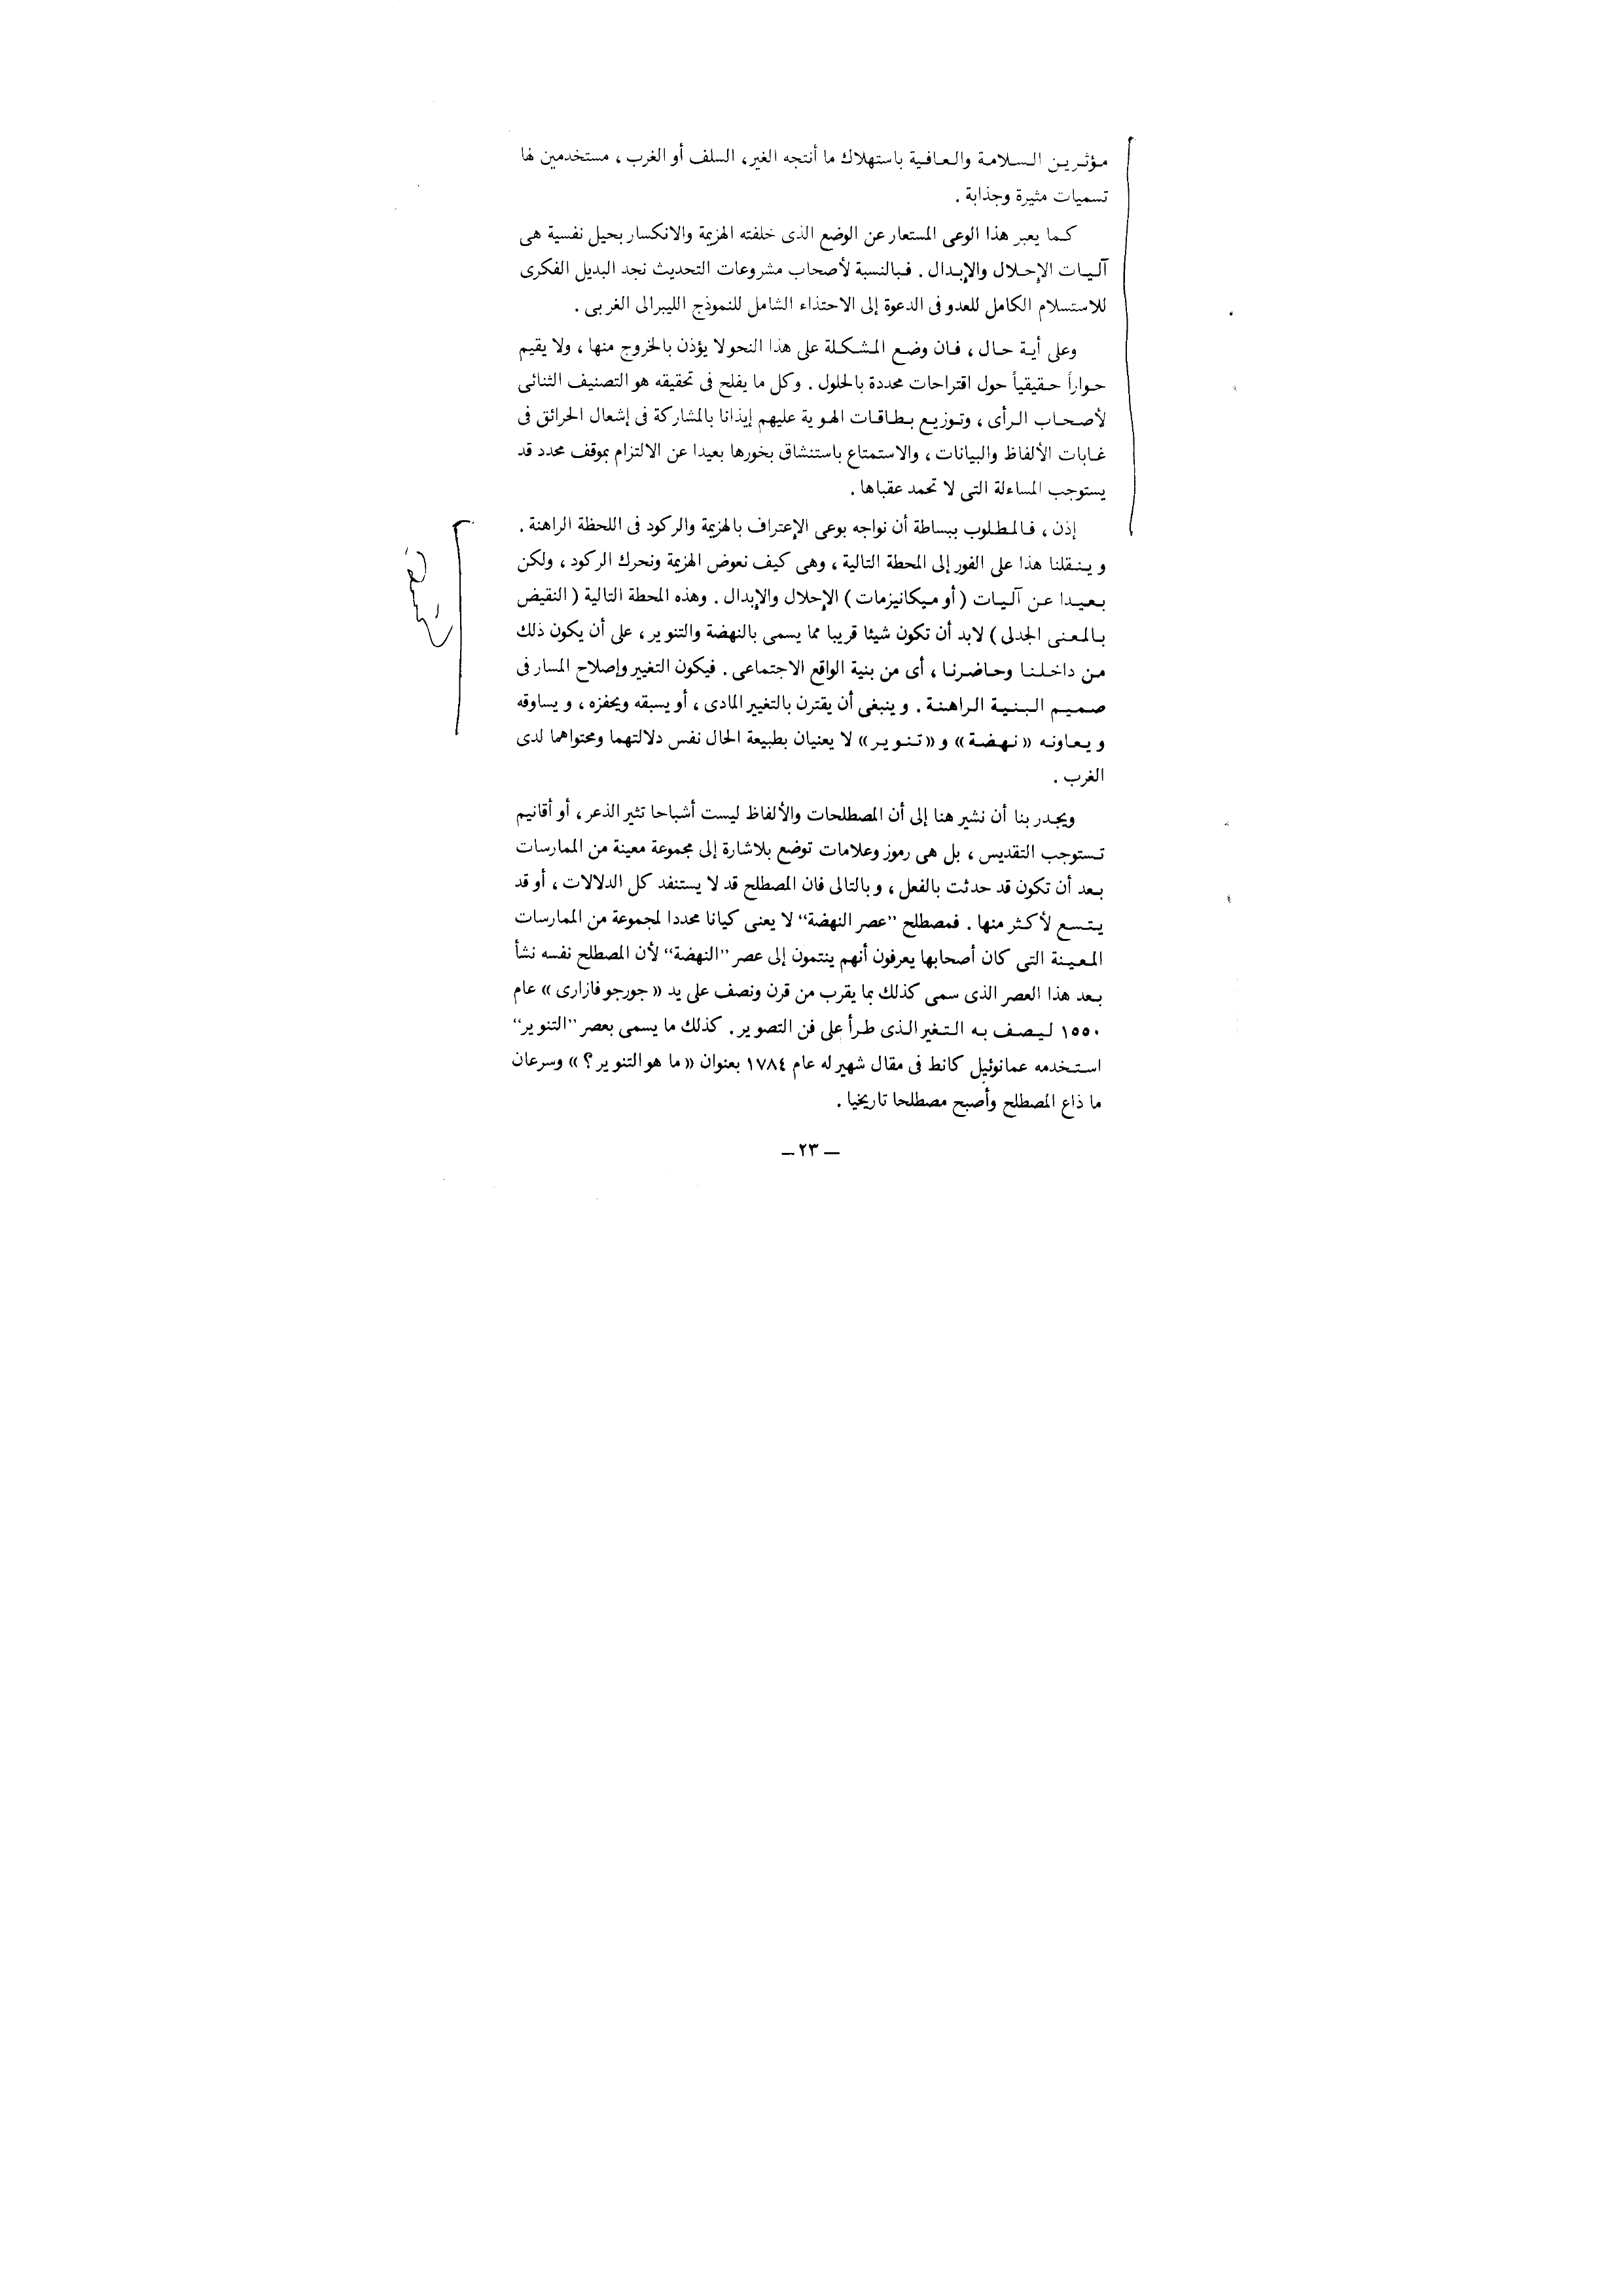 مؤثرين السلامة والعافية باستهلاك ما أنتجه الغير، السلف أو الغرب ، مستخدمين لها
تسميات مثيرة وجذابة .
كما يعبر هذا الوعى المستعار عن الوضع الذى خلفته الهزيمة والانكسار بحيل نفسية هى
آليات الإحلال والإبدال . فبالنسبة لأصحاب مشروعات التحديث نجد البديل الفكرى
للاستسلام الكامل للعدو فى الدعوة إلى الاحتذاء الشامل للنموذج الليبرالى الغربى .
وعلى أية حال ، فان وضع المشكلة على هذا النحو لا يؤذن بالخروج منها ، ولا يقيم
حواراً حقيقياً حول اقتراحات محددة بالحلول . وكل ما يفلح فى تحقيقه هو التصنيف الثنائى
لأصحاب الرأى ، وتوزيع بطاقات الهوية عليهم إيذانا بالمشاركة فى إشعال الحرائق فى
غابات الألفاظ والبيانات ، والاستمتاع باستنشاق بخورها بعيدا عن الالتزام بموقف محدد قد
يستوجب المساءلة التى لا تحمد عقباها .
إذن ، فالمطلوب ببساطة أن نواجه بوعى الإعتراف بالهزيمة والركود فى اللحظة الراهنة .
وينقلنا هذا على الفور إلى المحطة التالية ، وهى كيف نعوض الهزيمة ونحرك الركود ، ولكن
بعيدا عن آليات ( أو ميكانيزمات ) الإحلال والإبدال . وهذه المحطة التالية ( النقيض
بالمعنى الجدلى ) لابد أن تكون شيئا قريبا مما يسمى بالنهضة والتنوير ، على أن يكون ذلك
من داخلنا وحاضرنا ، أى من بنية الواقع الاجتماعى . فيكون التغيير وإصلاح المسار فى
صميم البنية الراهنة . وينبغى أن يقترن بالتغيير المادى ، أو يسبقه ويحفزه ، ويساوقه
ويعاونه « نهضة » و « تنوير » لا يعنيان بطبيعة الحال نفس دلالتهما ومحتواهما لدى
الغرب .
ويجدر بنا أن نشير هنا إلى أن المصطلحات والألفاظ ليست أشباحا تثير الذعر ، أو أقانيم
تستوجب التقديس ، بل هى رموز وعلامات توضع بلاشارة إلى مجموعة معينة من الممارسات
بعد أن تكون قد حدثت بالفعل ، وبالتالى فان المصطلح قد لا يستنفد كل الدلالات ، أو قد
يتسع لأكثر منها . فمصطلح "عصر النهضة" لا يعنى كيانا محددا لمجموعة من الممارسات
المعينة التى كان أصحابها يعرفون أنهم ينتمون إلى عصر "النهضة" لأن المصطلح نفسه نشأ
بعد هذا العصر الذى سمى كذلك بما يقرب من قرن ونصف على يد « جورجو فازارى » عام
١٥٥٠ ليصف به التغير الذى طرأ على فن التصوير . كذلك ما يسمى بعصر "التنوير"
استخدمه عمانوئيل كانط فى مقال شهير له عام ١٧٨٤ بعنوان « ما هو التنوير ؟ » وسرعان
ما ذاع المصطلح وأصبح مصطلحا تاريخيا .
— ٢٣ —